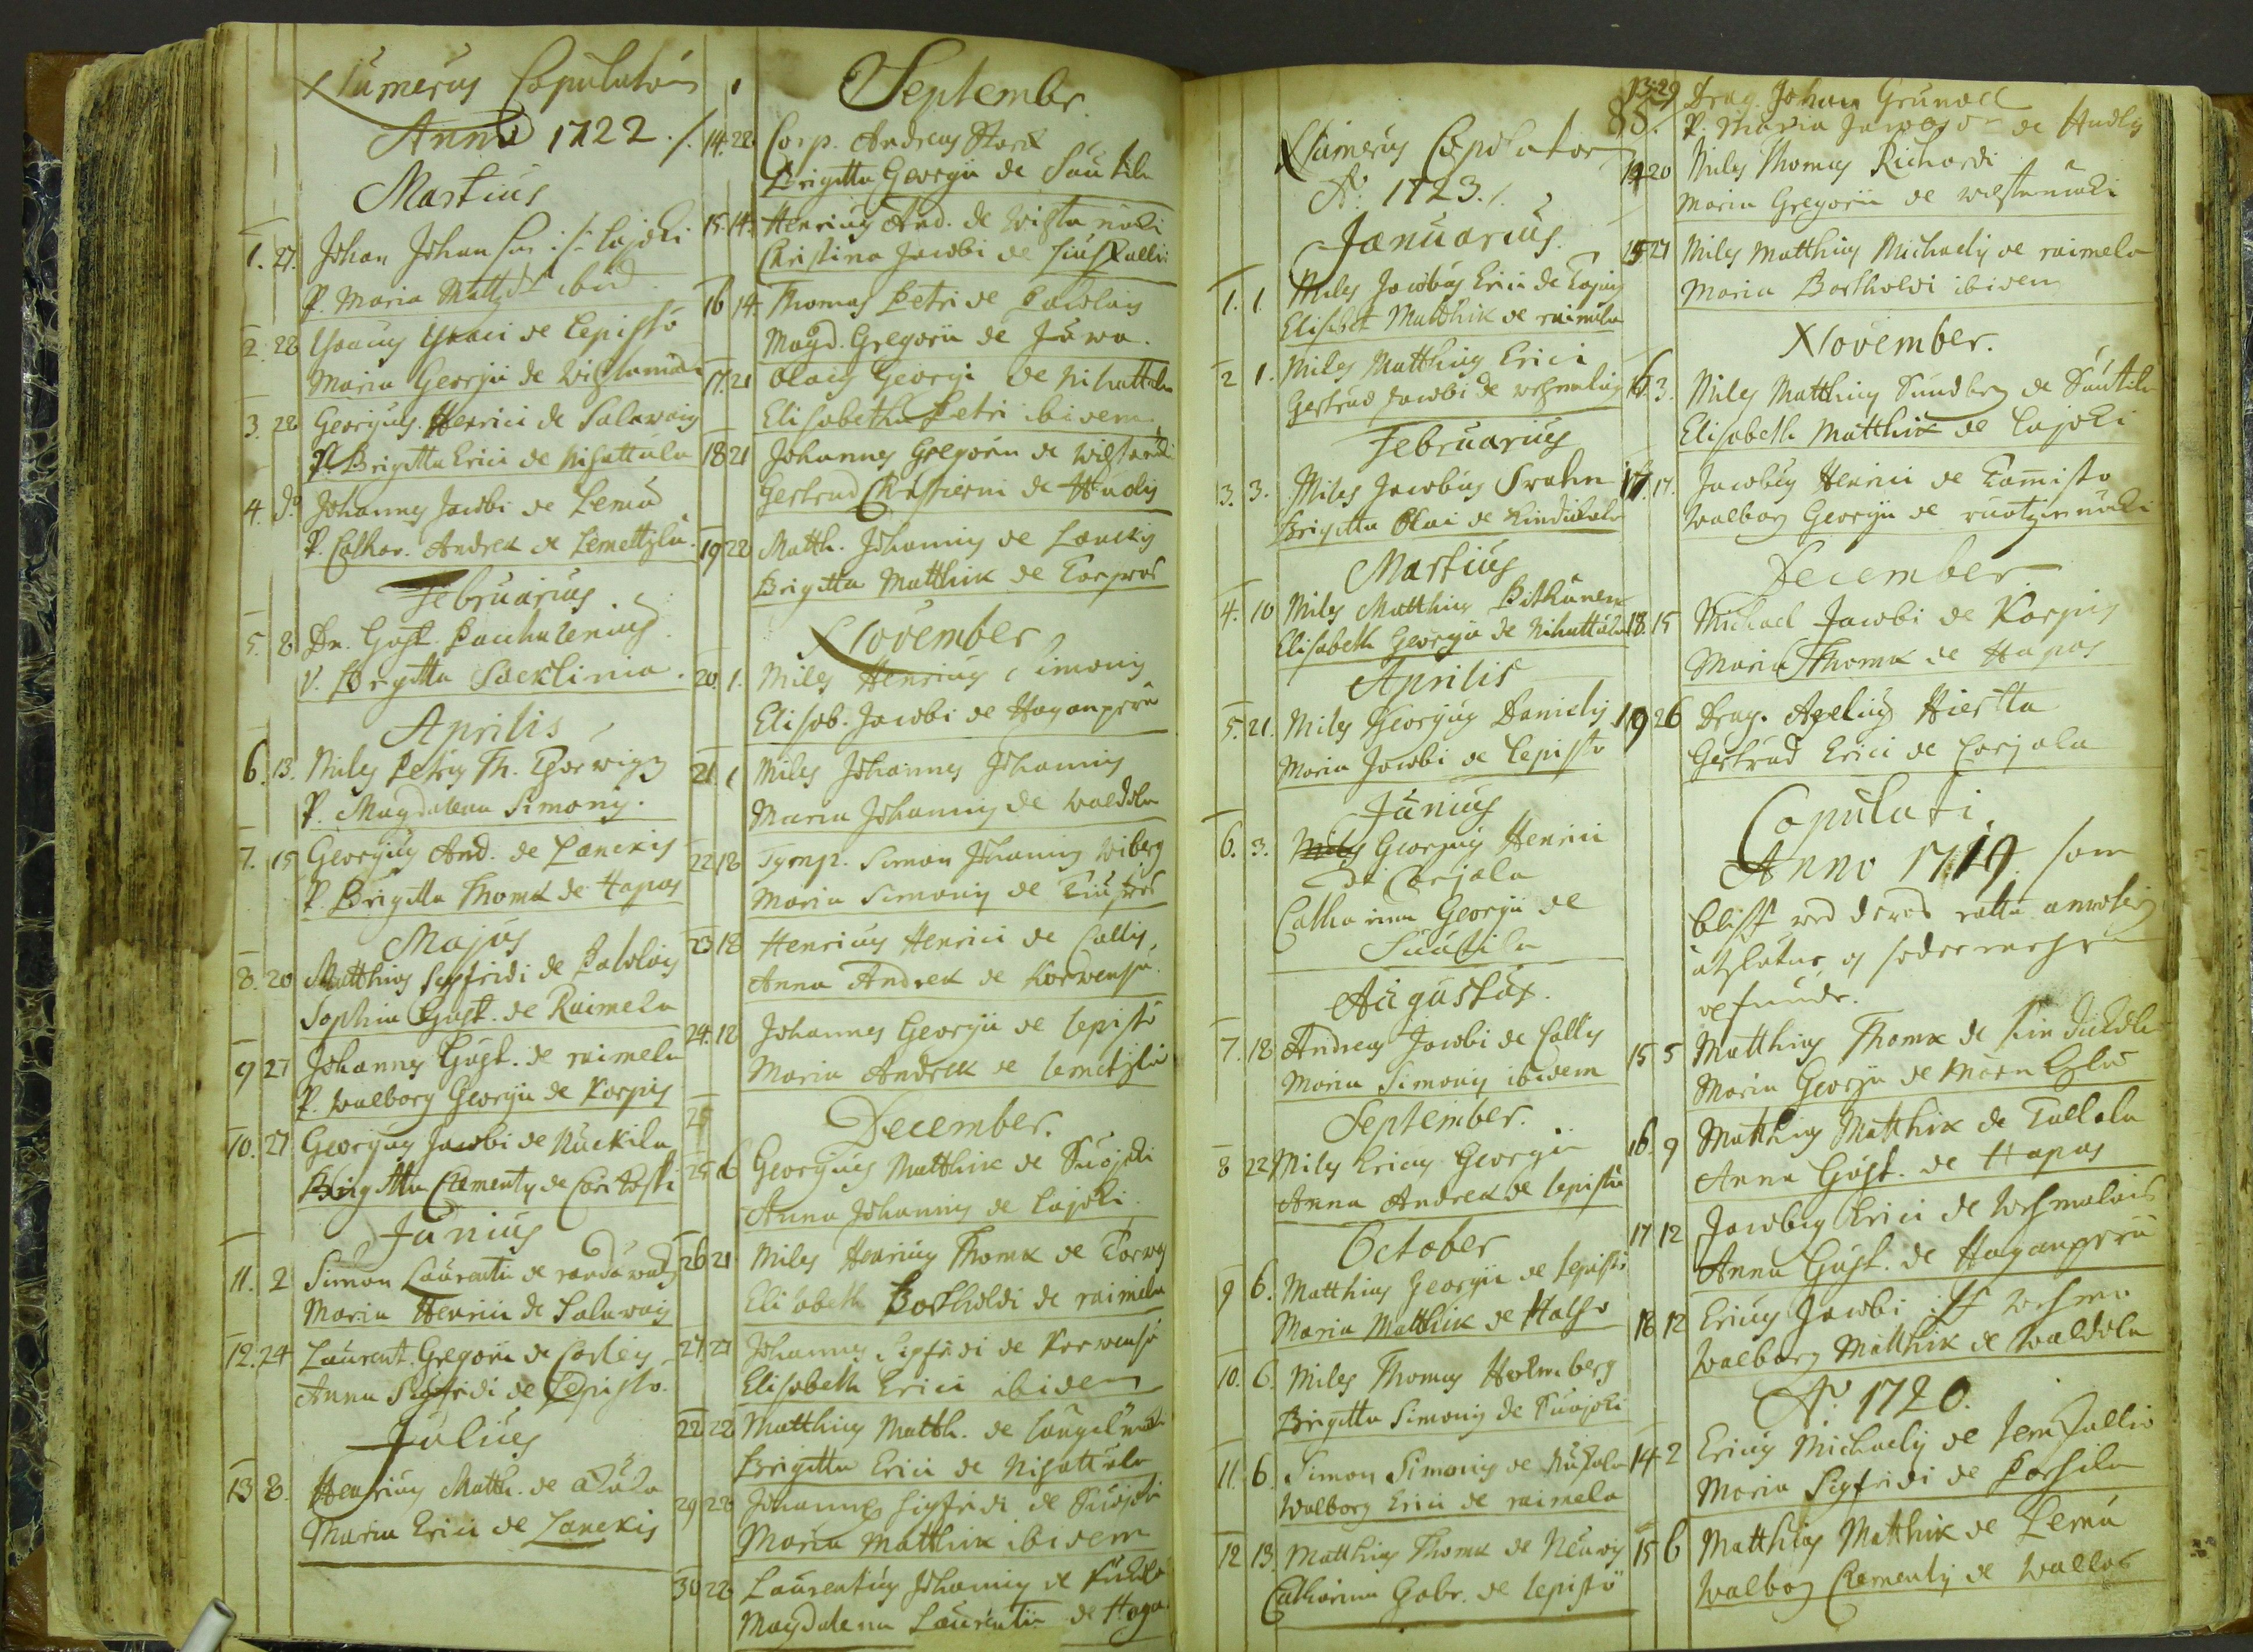 Numerus Copulatorũ
Anno 1722 ./.
Martius
1. 27. Johan Johansson i Lajoki
P. Maria Matzdr ibid.
2. 28 Isaacus Isaaci de Lepistö
Maria Georgii de
3. 28 Georgius Henrici de Salawais
P. Brigitta Erici de Nihattula
4. do Johannes Jacobi de Lemu
P. Cathar. Andreæ de Lemettylä
Februarius
5. 8 Dn. Gust. Pacchalenius
V. Brgitta Saxlinia.
Aprilis
6. 13. Miles Petrus Th. Torwigg
P. Magdalena Simonis.
7. 15 Georgius And. de Lanckis
P. Brigitta Thomæ de Hapas
Majus
8. 20 Matthias Sigfridi de Pawlais
Sophia Gust. de Raimela
9 27 Johannes Gust. de raimela
P. Walborg Georgii de Korpis
10. 27 Georgius Jacobi de Nuckila
Brigitta Clementis de
Junius
11. 2 Simon Laurentii de
Maria Henrici de Salawais
12. 24 Laurent. Gregorii de
Anna Sigfridi de Lepistö.
Julius
13 8. Henricus Matth. de Alula
Maria Erici de Lanckis
Septembr
14. 28 Corp. Andreas Stark
Brigitta Georgii de Sautila
15. 14. Henricus And. de
Christina Jacobi de
16 14. Thomas Petri de Pawlais
Magd. Gregorii de Juwa.
17. 21 Olaus Georgi de Nihattula
Elisabetha Petri ibidem
18 21 Johannes Gregorii de
Gertrud Christierni de Hudis
19 22 Matth. Johannis de Lanckis
Brigitta Matthiæ de
November
20. 1. Miles Henricus Simonis
Elisab. Jacobi de Haganperä
21. 1 Miles Johannes Johannis
Maria Johannis de Waldola
22 18 Tymp. Simon Johannis Wiberg
Maria Simonis de
23 18 Henricus Henrici de Callis
Anna Andreæ de Korwensu
24. 18 Johannes Georgii de Lepistö
Maria Andreæ de Lemetylä
25
December.
25 6 Georgius Matthiæ de Suojoki
Anna Johannis de Lajoki
26 21 Miles Henricus Thomæ de
Elisabeth Bartholdi de raimela
27 27 Johannes Sigfridi de Korwensu
Elisabeth Erici ibidem
22 22 Matthias Matth. de
Brigitta Erici de Nihattula
29 28 Johannes Sigfridi de Suojoki
Maria Matthiæ ibidem
30 28 Laurentius Johannis de
Magdalena Laurentii de
85.
Numerus Copulator
Ao: 1723./.
Januarius.
1. 1. Miles Jacobus Erici de
Elisabet Matthiæ de raimela
2 1. Miles Matthias Erici
Gertrud Jacobi de
Februarius
3. 3. Miles Jacobus Svahn
Brigitta Olai de
Martius
4. 10 Miles Matthias Pitkänen
Elisabeth Georgii de Nihattula
Aprilis
5. 21. Miles Georgius Danielis
Maria Jacobi de Lepistö
Junius
6. 3. Miles Georgius Henrici
de Corjala
Catharina Georgii de
Sautila
Augustus.
7. 18 Andreas Jacobi de Callis
Maria Simonis ibidem
September.
8 22 Miles Ericus Georgii
Anna Andreæ de Lepistö
October
9 6. Matthias Georgii de Lepistö
Maria Matthiæ de
10. 6. Miles Thomas Holmberg
Brigitta Simonis de Suojoki
11. 6 Simon Simonis de
Walborg Erici de raimela
12 13. Matthias Thomæ de
Catharina Gabr. de Lepistö
13. 29 Drag. Johan Grundel
P. Maria Jacobsdr de Hudis
14 20 Miles Thomas Richardi
Maria Gregorii de
15 27 Miles Matthias Michaelis de raimela
Maria Bartholdi ibidem
November.
16 3. Miles Matthias Sundberg de Sautila
Elisabeth Matthiæ de Lajoki
17. 17. Jacobus Henrici de Tamisto
Walborg Georgii de
December
18. 15 Michael Jacobi de Korpis
Maria Thomæ de Hapas
19 26 Drag. Axelius Hiertta
Gertrud Erici de Corjala
Copulati
Anno 1719. som
15 5 Matthias Thomæ de
Maria Georgii de
16 9 Matthias Matthiæ de
Anna Gust. de Hapas
17 12 Jacobus Erici de
Anna Gust. de Haganperä
18 12 Ericus Jacobi
Walborg Matthiæ de Waldola
Ao 1720.
14 2 Ericus Michaelis de
Maria Sigfridi de
15 6 Matthias Matthiæ de Lemu
Walborg Clementis de